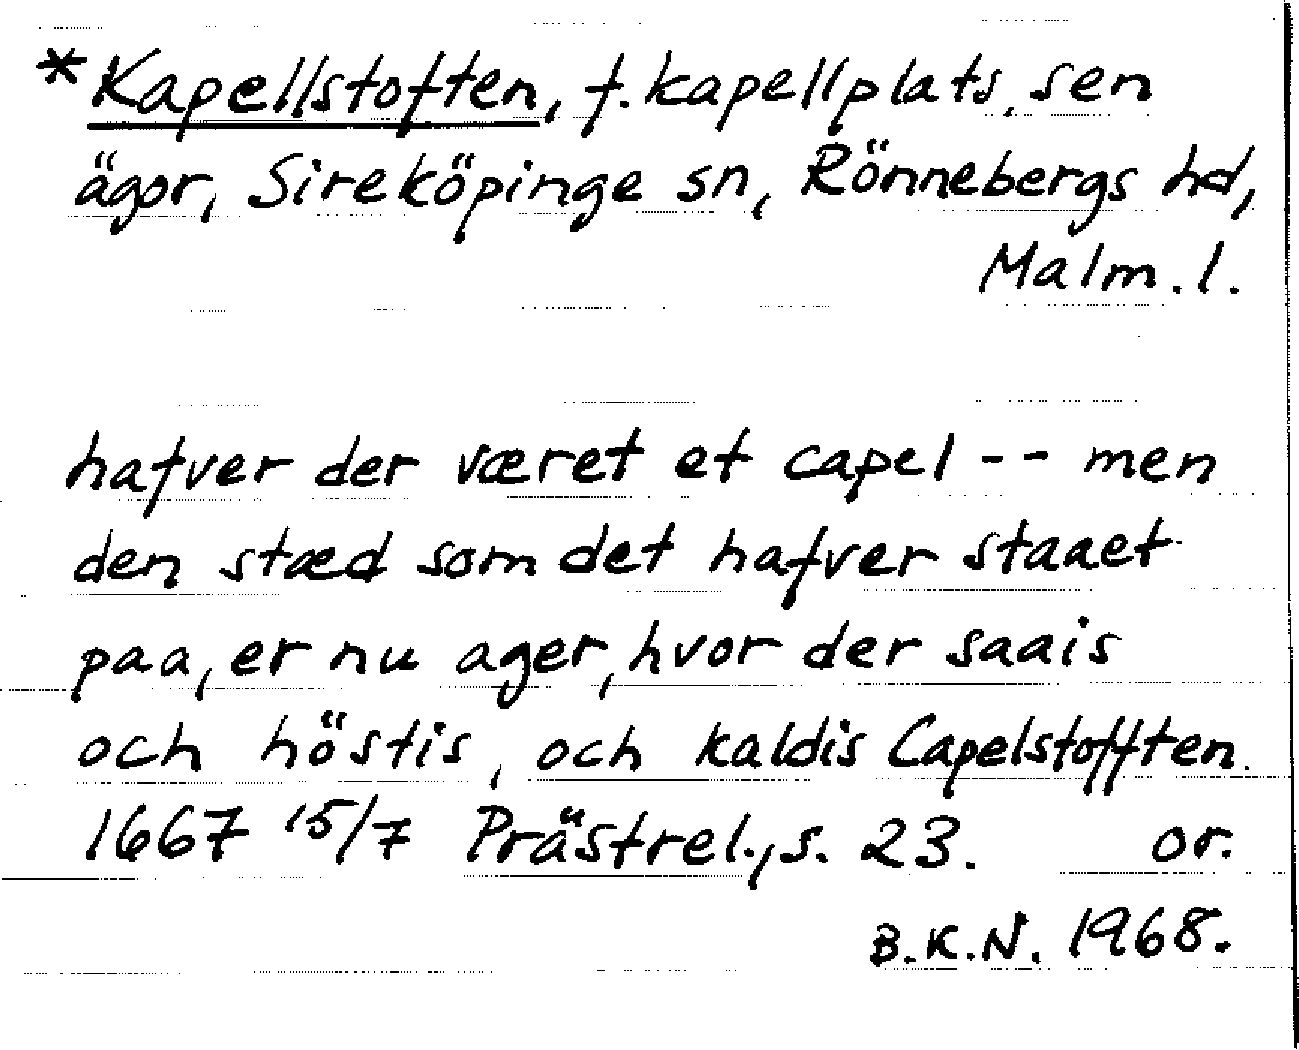 *Kapellstoften, f. kapellplats, sen
ägor, Sireköpinge sn, Rönnebergs hd,
Malm. l.
hafver der været et capel -- men
den stæd som det hafver staaet
paa, er nu ager, hvor der saais
och höstis, och kaldis Capelstofften.
1667 15/7 Prästrel., s. 23. or.
B.K.N. 1968.